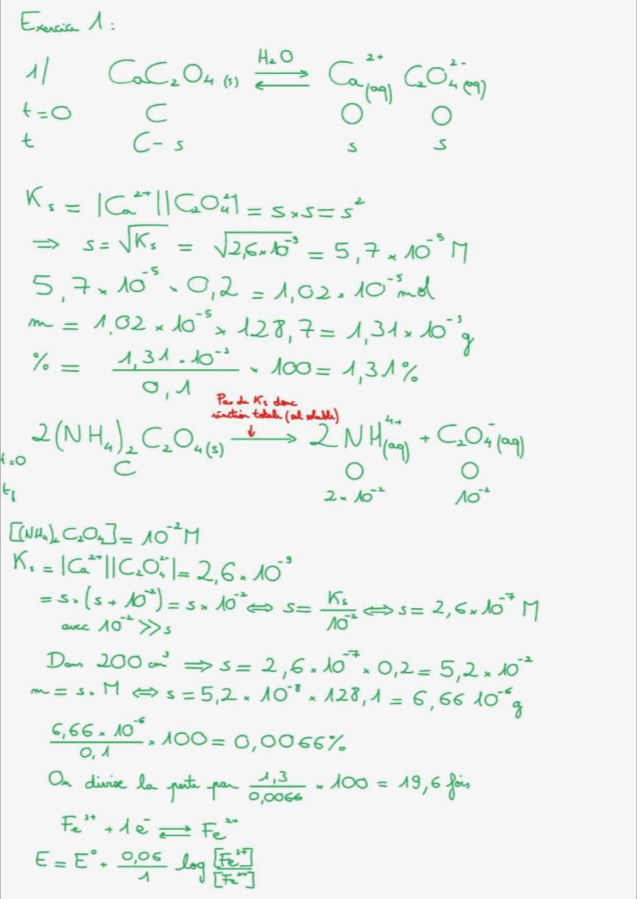 Exercice 1 :
1/ CaC₂O₄ (s) ⇌ Ca²⁺(aq) C₂O₄²⁻(aq)
H₂O
t=0 C O O
t C-s s s
Ks = |Ca²⁺||C₂O₄²⁻| = s×s = s²
⇒ s = √Ks = √2,6×10⁻⁹ = 5,7×10⁻⁵ M
5,7×10⁻⁵ × 0,2 = 1,02×10⁻⁵ mol
m = 1,02×10⁻⁵ × 128,7 = 1,31×10⁻³ g
% = 1,31×10⁻³ / 0,1 × 100 = 1,31%
Pas de Ks donc
réaction totale (sel soluble)
2(NH₄)₂C₂O₄(s) → 2NH₄⁺(aq) + C₂O₄⁻(aq)
t=0 C O O
tf 2×10⁻² 10⁻²
[(NH₄)₂C₂O₄] = 10⁻² M
Ks = |Ca²⁺||C₂O₄²⁻| = 2,6×10⁻⁹
= s×(s+10⁻²) = s×10⁻² ⇔ s = Ks / 10⁻² ⇔ s = 2,6×10⁻⁷ M
avec 10⁻² ≫ s
Dans 200 cm³ ⇒ s = 2,6×10⁻⁷ × 0,2 = 5,2×10⁻²
m = s.M ⇔ s = 5,2×10⁻⁸ × 128,1 = 6,66 10⁻⁶ g
6,66×10⁻⁶ / 0,1 × 100 = 0,0066%
On divise la perte par 1,3 / 0,0066 × 100 = 19,6 fois
Fe³⁺ + 1e⁻ ⇌ Fe²⁺
E = E° + 0,06 / 1 log [Fe³⁺] / [Fe²⁺]